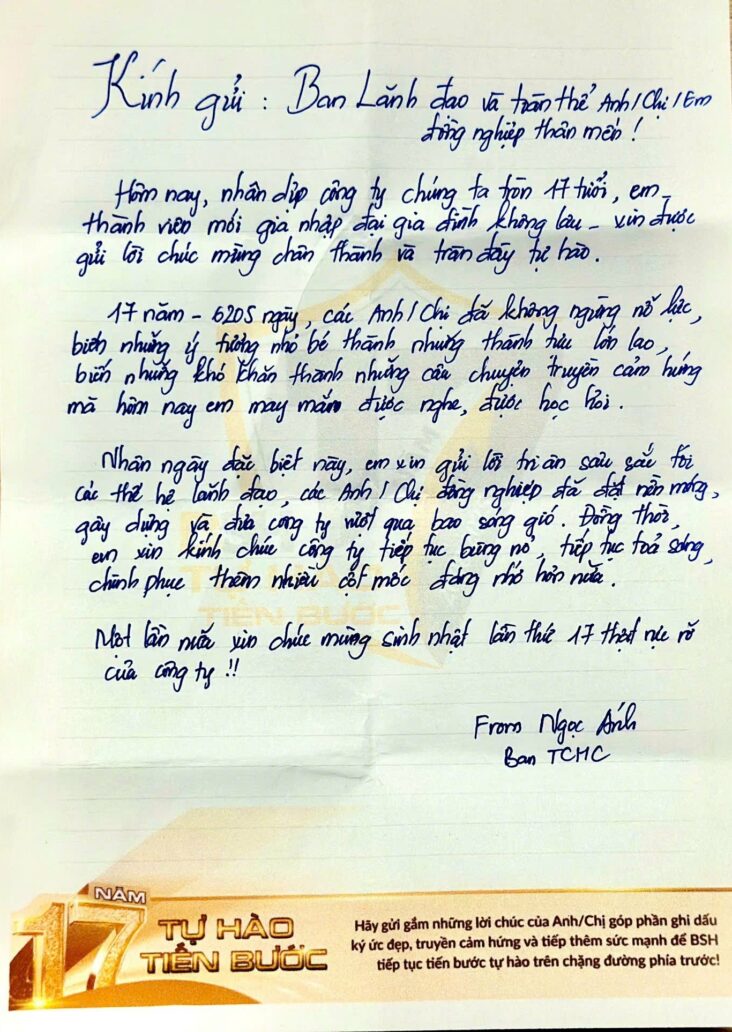 Kính gửi : Ban Lãnh đạo và toàn thể Anh/Chị/Em
đồng nghiệp thân mến !
Hôm nay, nhân dịp công ty chúng ta tròn 17 tuổi, em -
thành viên mới gia nhập đại gia đình không lâu - xin được
gửi lời chúc mừng chân thành và tràn đầy tự hào.
17 năm - 6205 ngày, các Anh/Chị đã không ngừng nỗ lực,
biến những ý tưởng nhỏ bé thành những thành tựu lớn lao,
biến những khó khăn thành những câu chuyện truyền cảm hứng
mà hôm nay em may mắn được nghe, được học hỏi.
Nhân ngày đặc biệt này, em xin gửi lời tri ân sâu sắc tới
các thế hệ lãnh đạo, các Anh/Chị đồng nghiệp đã đặt nền móng,
gây dựng và đưa công ty vượt qua bao sóng gió. Đồng thời,
em xin kính chúc công ty tiếp tục bùng nổ, tiếp tục toả sáng,
chinh phục thêm nhiều cột mốc đáng nhớ hơn nữa.
Một lần nữa xin chúc mừng sinh nhật lần thứ 17 thật rực rỡ
của công ty !!
From Ngọc Ánh
Ban TCHC
TỰ HÀO
TIẾN BƯỚC
NĂM
17 TỰ HÀO
TIẾN BƯỚC
Hãy gửi gắm những lời chúc của Anh/Chị góp phần ghi dấu
ký ức đẹp, truyền cảm hứng và tiếp thêm sức mạnh để BSH
tiếp tục tiến bước tự hào trên chặng đường phía trước!